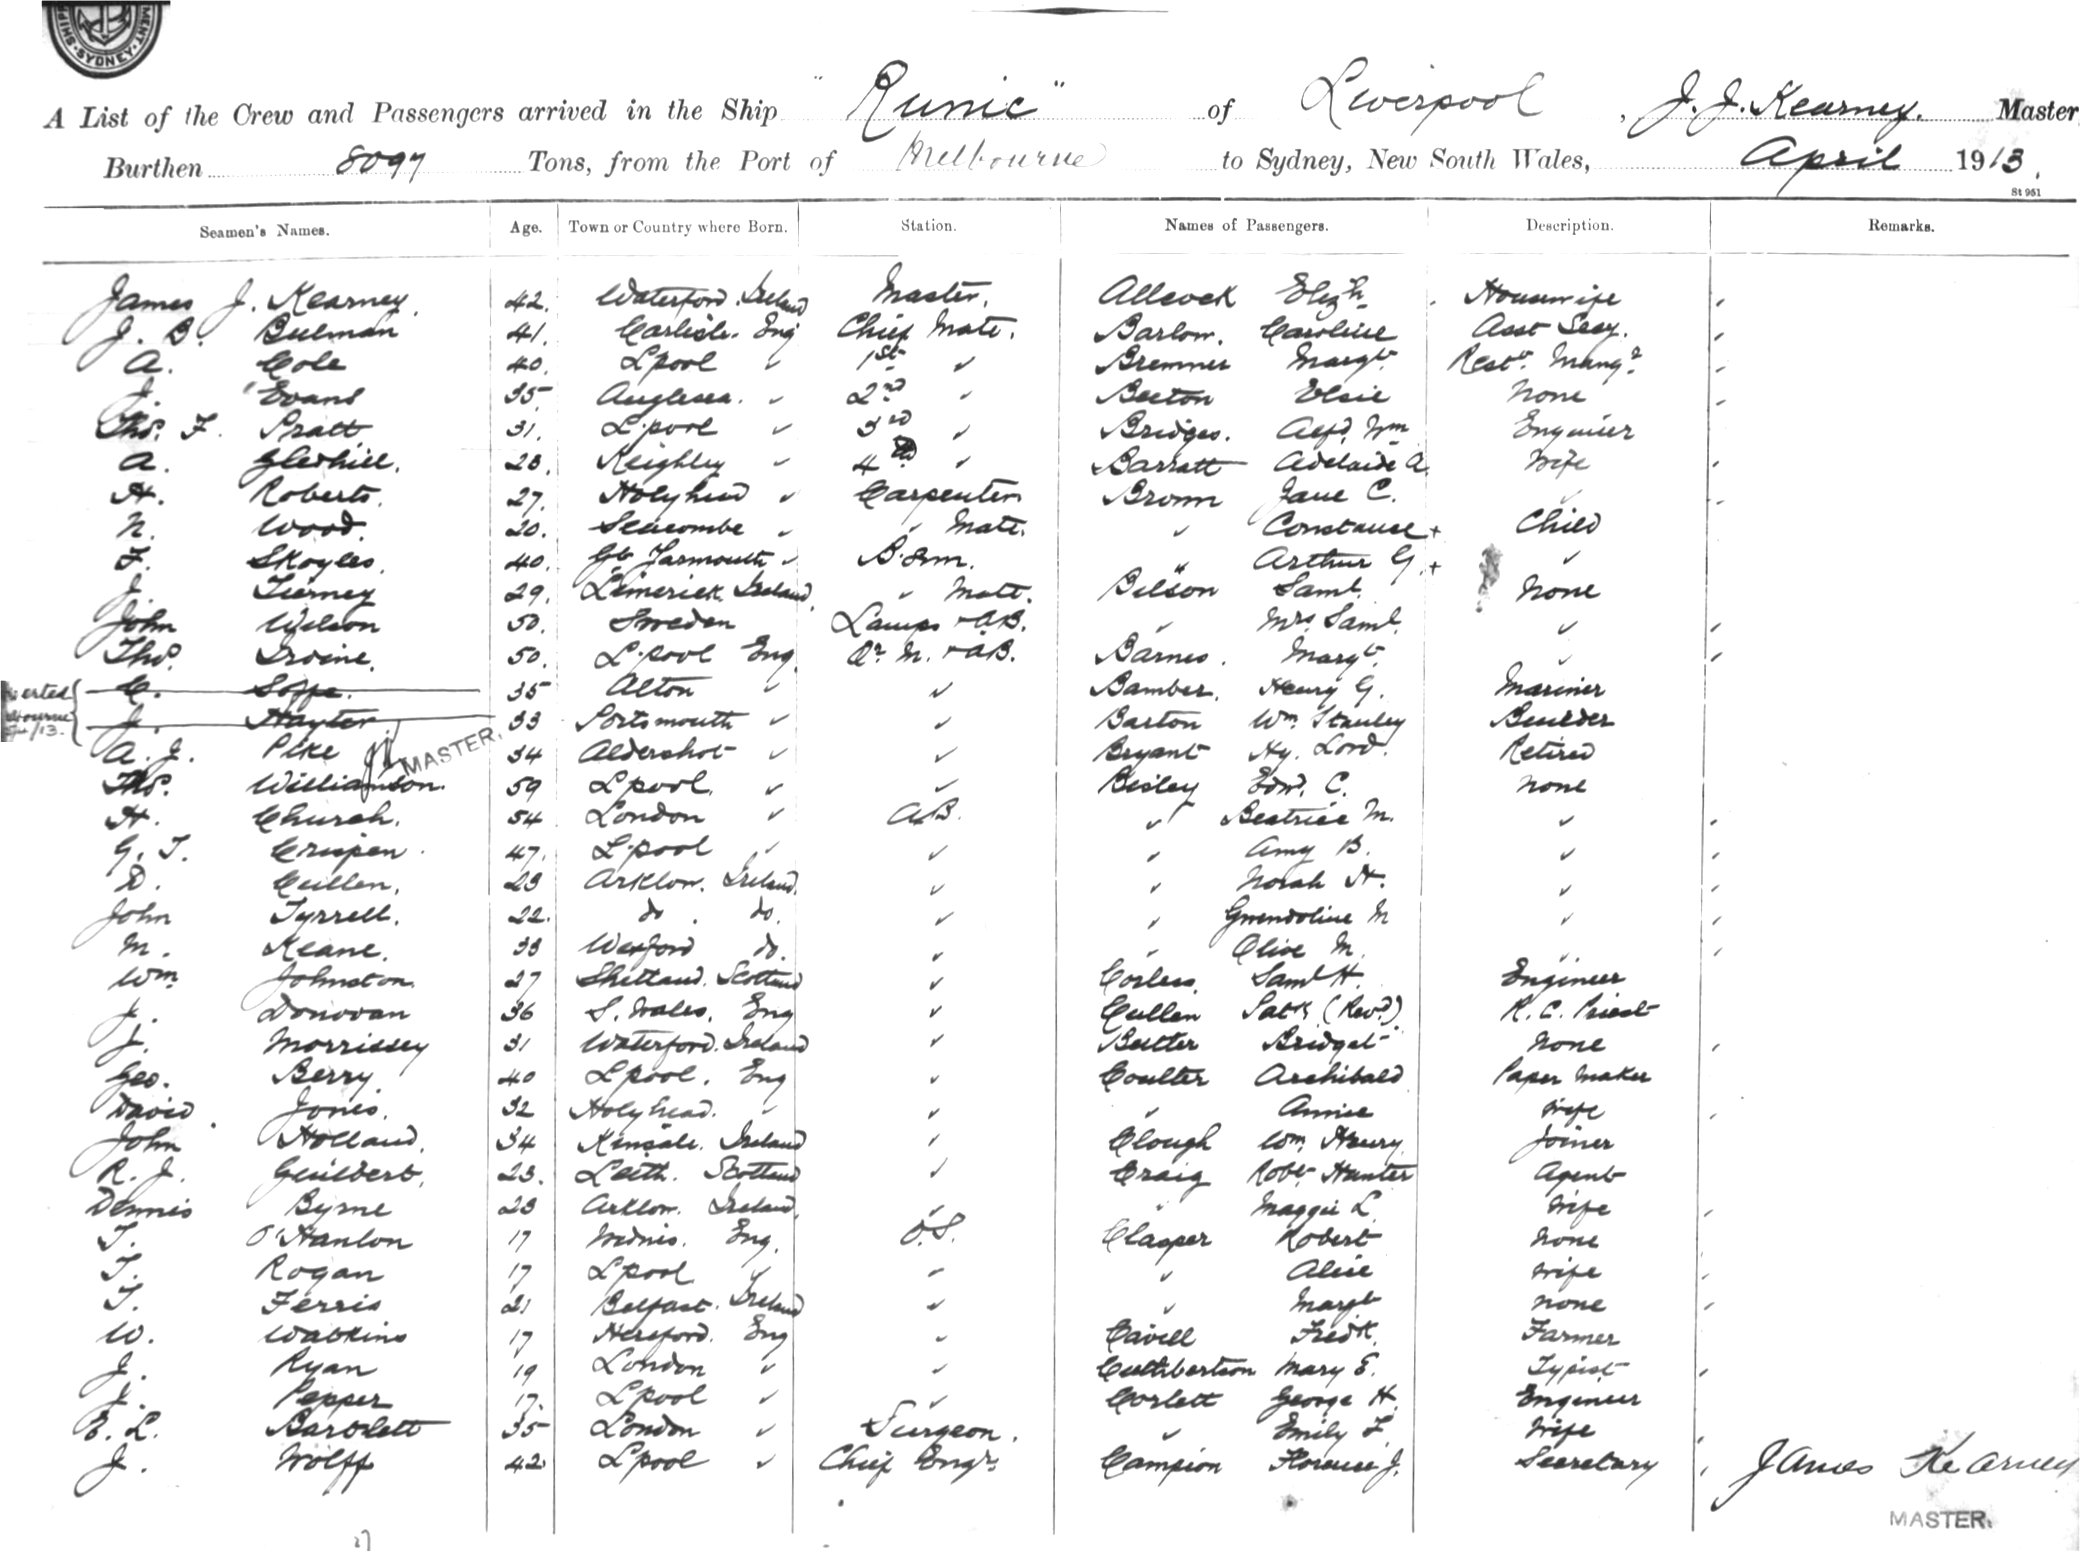 SHIPP MENT. SYDNEY
A List of the Crew and Passengers arrived in the Ship "Runic" of Liverpool, J. J. Kearney. Master
Burthen 8097 Tons, from the Port of Melbourne to Sydney, New South Wales, April 1913.
St 951
Seamen's Names. Age. Town or Country where Born. Station. Names of Passengers. Description. Remarks.
James J. Kearney. 42. Waterford. Ireland Master. Allcock Elizh Housewife
J. B. Bulman 41. Carlisle. Eng Chief Mate. Barlow. Caroline Asst Secy.
A. Cole 40. Lpool " 1st " Bremner Margt. Restt. Mangr
J. Evans 35 Anglesea. " 2nd " Beeton Elsie None
Thos. F. Pratt 31. L'pool " 3rd " Bridges. Alfd. Wm Engineer
A. Gledhill. 28. Keighley " 4th " Barratt Adelaide A. Wife
H. Roberts. 27. Holyhead " Carpenter Brown Jane C. "
N. Wood. 20. Seacombe " " Mate. " Constance + Child
F. Skoyles. 40. Gt Yarmouth " B.sm. " Arthur G. + "
J. Tierney 29. Limerick. Ireland. " Mate. Bilson Saml. None
John Wilson 50. Sweden Lamps + AB. " Mrs. Saml. "
Thos. Irvine. 50. L'pool Eng. Qr. M. + AB. Barnes. Margt. "
erted C. Soffe. 35 Alton " " Bamber. Henry G. Mariner
bourne /13. J. Hayter 33 Portsmouth " " Barton Wm. Stanley Builder
A. J. Pike MASTER. 34 Aldershot " " Bryant Hy. Lord. Retired
Thos. Williamson. 59 Lpool. " " Bisley Edw. C. None
H. Church. 54 London " A.B. " Beatrice M. "
G. T. Crispen. 47. L'pool " " " Amy B. "
D. Cullen. 23 Arklow. Ireland. " " Norah H. "
John Tyrrell. 22. do. do. " " Gwendoline M "
M. Keane. 33 Wexford do. " " Olive M. "
Wm. Johnston. 27 Shetland. Scotland " Corless. Saml H. Engineer
J. Donovan 36 S. Wales. Eng " Cullen Patk (Revd.) R. C. Priest
J. Morrissey 31 Waterford. Ireland " Butter Bridget None
Geo. Berry. 40 Lpool. Eng " Coulter Archibald Paper Maker
David Jones. 32 Holyhead. " " " Annie Wife
John Holland. 34 Kinsale. Ireland " Clough Wm. Henry Joiner
R. J. Guilbert. 23. Leith. Scotland " Craig Robt. Hunter Agent
Dennis Byrne 23 Arklow. Ireland. " " Maggie L. Wife
T. O'Hanlon 17 Widnis. Eng. O.S. Clasper Robert None
T. Rogan 17 Lpool " " " Alice Wife
T. Ferris 21 Belfast. Ireland " " Margt None
W. Watkins 17 Hereford. Eng " Cavell Fredk. Farmer
J. Ryan 19 London " " Cuthbertson Mary E. Typist
J. Pepper 17. Lpool " " Corlett George H. Engineer
E. L. Bartlett 35 London " Surgeon. " Emily F. Wife
J. Wolff 42 Lpool " Chief Engr. Campion Florence J. Secretary James Kearney
MASTER.